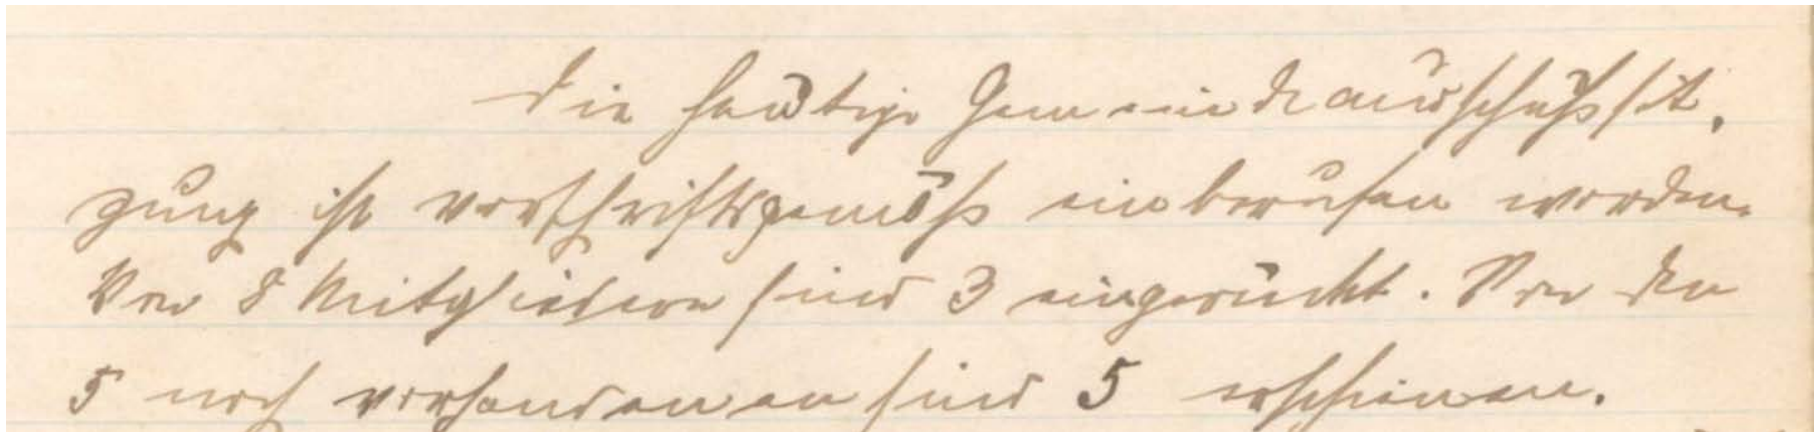 Die heutige Gemeindeausschußsit-
zung ist vorschriftsgemäß einberufen worden.
Von 8 Mitgliedern sind 3 eingerückt. Von den
5 noch vorhandenen sind 5 erschienen.